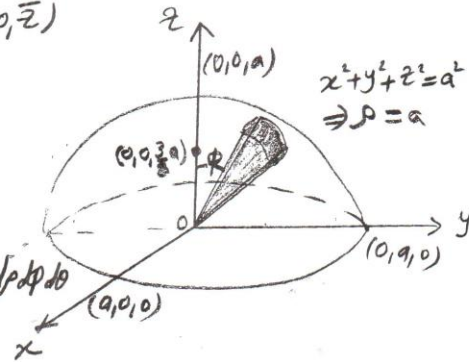 0, z̄)
z
(0,0,a)
x²+y²+z²=a²
⇒ρ=a
(0,0,3/8 a)
φ
0
y
(0,a,0)
dρdφdθ
(a,0,0)
x